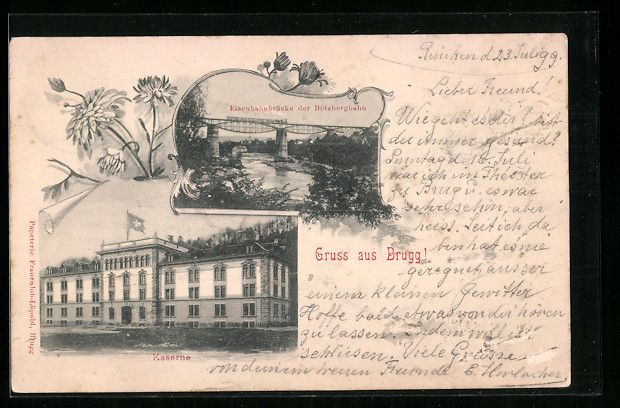 Riniken d 23. Juli 99.
Lieber Freund!
Wie geht es dir? bist
du immer gesund?
Sonntag d 16. Juli
war ich im Theater
zu Brugg u. es war
sehr schön, aber
heiss. Seit ich da
bin hat es nie
geregnet ausser
einem kleinen Gewitter
Hoffe bald etwas von dir hören
zu lassen. Indem will ich
schliesen. Viele Grüsse
von deinem treuen Freunde E. Horlacher
Eisenbahnbrücke der Bötzbergbahn
Gruss aus Brugg!
Kaserne
Papeterie Frauenlob-Lüpold, Brugg